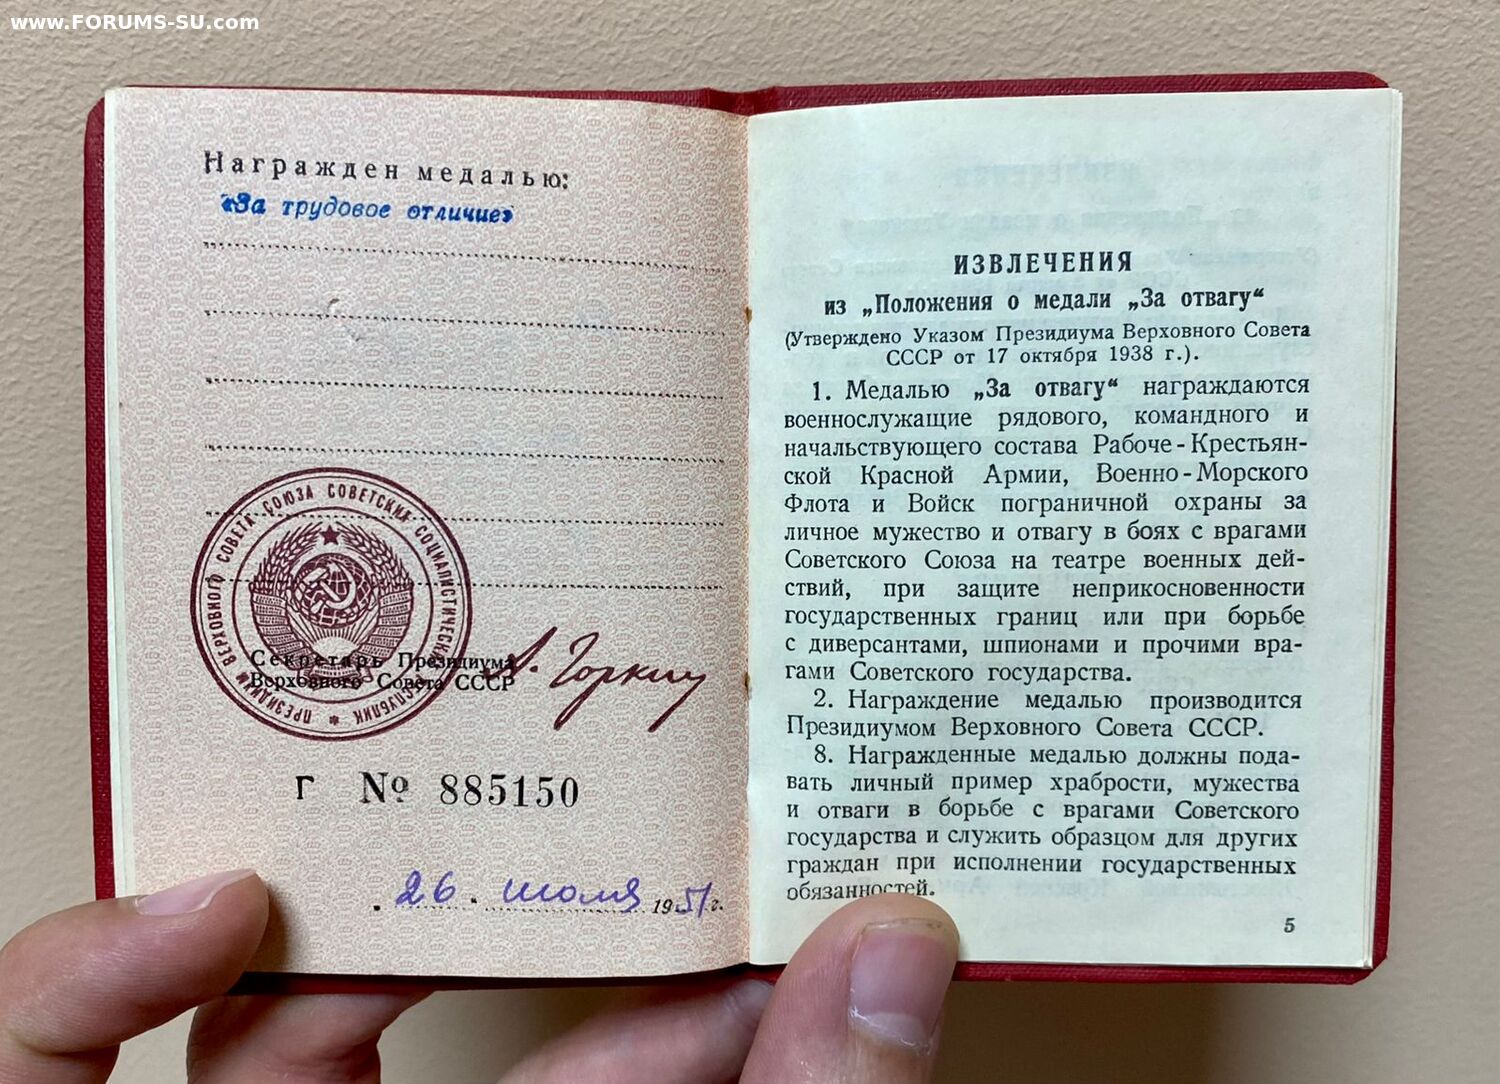 www.FORUMS-SU.com
Награжден медалью:
«За трудовое отличие»
ПРЕЗИДИУМ ВЕРХОВНОГО СОВЕТА СОЮЗА СОВЕТСКИХ СОЦИАЛИСТИЧЕСКИХ РЕСПУБЛИК *
Секретарь Президиума
Верховного Совета СССР
А. Горкин
Г № 885150
26 июля 1951 г.
ИЗВЛЕЧЕНИЯ
из „Положения о медали „За отвагу“
(Утверждено Указом Президиума Верховного Совета
СССР от 17 октября 1938 г.).
1. Медалью „За отвагу“ награждаются
военнослужащие рядового, командного и
начальствующего состава Рабоче-Крестьян-
ской Красной Армии, Военно-Морского
Флота и Войск пограничной охраны за
личное мужество и отвагу в боях с врагами
Советского Союза на театре военных дей-
ствий, при защите неприкосновенности
государственных границ или при борьбе
с диверсантами, шпионами и прочими вра-
гами Советского государства.
2. Награждение медалью производится
Президиумом Верховного Совета СССР.
8. Награжденные медалью должны пода-
вать личный пример храбрости, мужества
и отваги в борьбе с врагами Советского
государства и служить образцом для других
граждан при исполнении государственных
обязанностей.
5